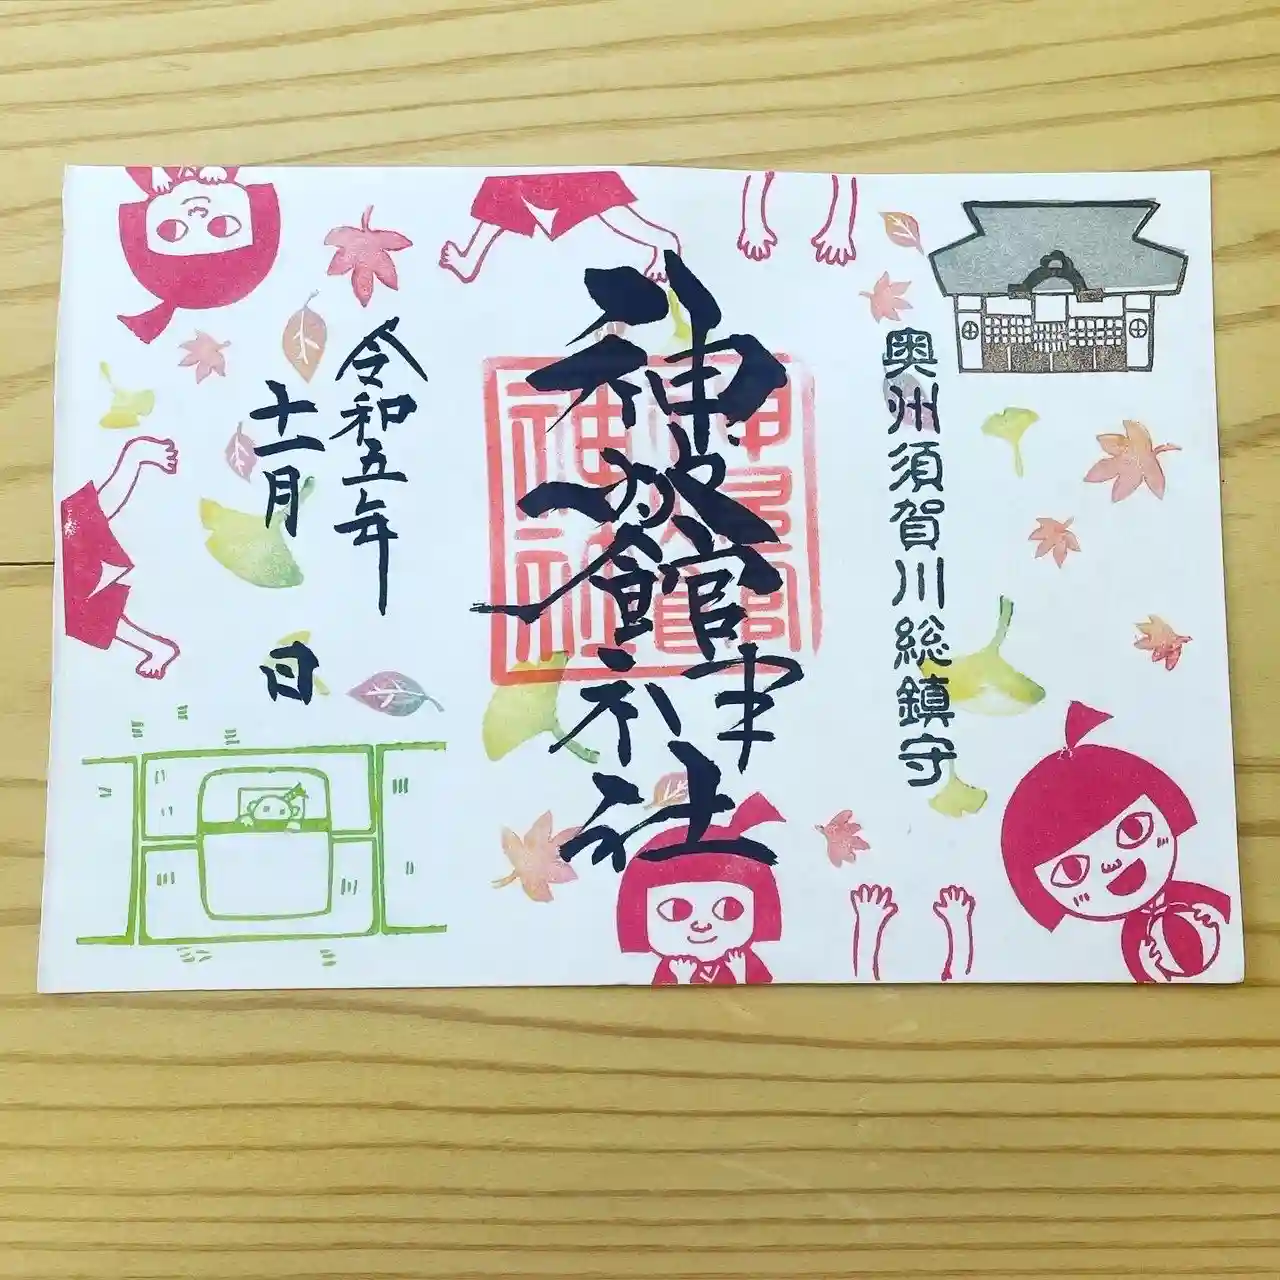 奥州須賀川総鎮守
神炊館神社
令和五年
十一月 日